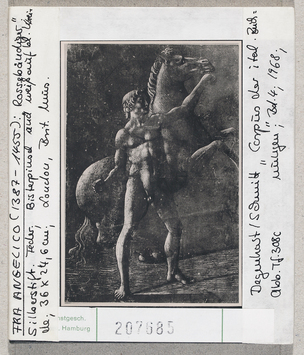 FRA ANGELICO (1387-1455): Rossebändiger"
Silberstift, Feder, Bisterpinsel auf weiß auf
36 x 24,6 cm; London, Brit. Mus.
Degenhart/Schmitt „Corpus der ital. Zeich-
nungen", Bd. 4, 1968,
Abb. Tf. 308c
nstgesch.
Hamburg
207685